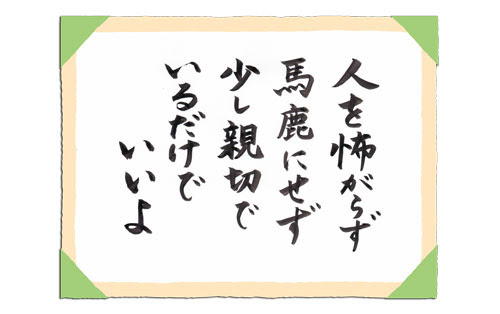 人を怖がらず
馬鹿にせず
少し親切で
いるだけで
いいよ